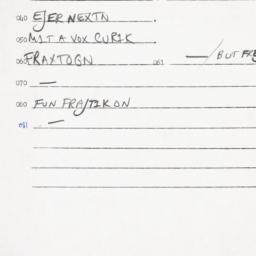 040 EJER NEXTN .
050 MIT A VOX CURIK
060 FRAXTOGN 061 — / BUT FRE
070 —
060 FUN FRAJTIKON
061 —